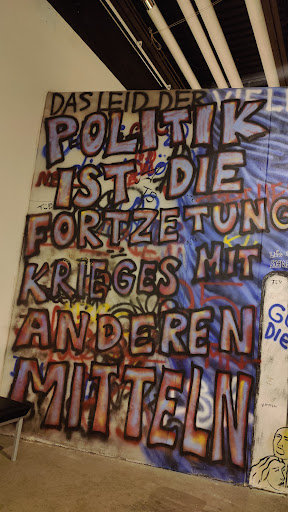 DAS LEID DER VIEL
POLITIK
IST DIE
FORTZETUNG
KRIEGES MIT
ANDEREN
MITTELN
GO
DIE